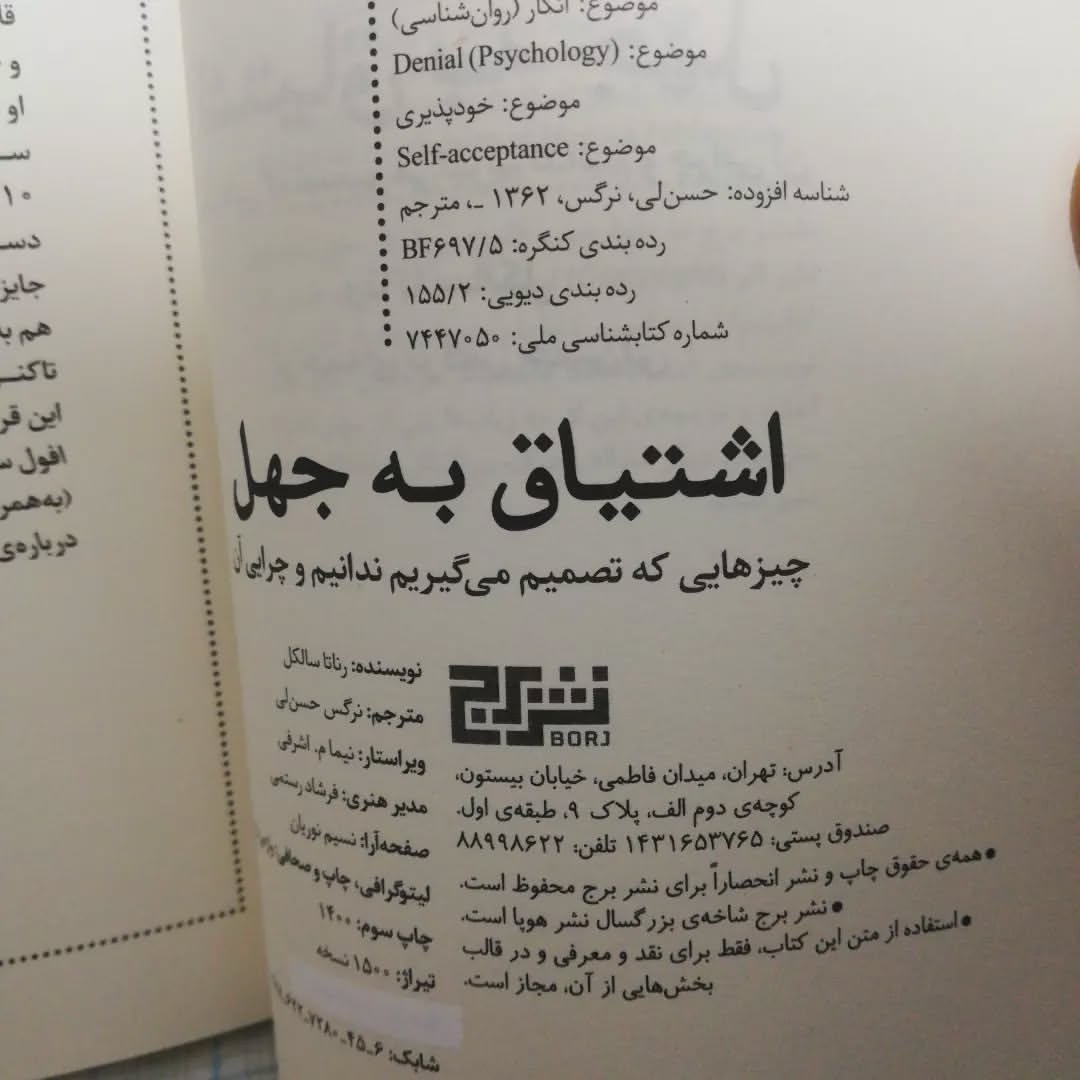 موضوع: انکار (روان‌شناسی)
موضوع: Denial (Psychology)
موضوع: خودپذیری
موضوع: Self-acceptance
شناسه افزوده: حسن‌لی، نرگس، ۱۳۶۲ -، مترجم
رده بندی کنگره: BF۶۹۷/۵
رده بندی دیویی: ۱۵۵/۲
شماره کتابشناسی ملی: ۷۴۴۷۰۵۰
اشتیاق به جهل
چیزهایی که تصمیم می‌گیریم ندانیم و چرایی آن
نشر برج
BORJ
آدرس: تهران، میدان فاطمی، خیابان بیستون،
کوچه‌ی دوم الف، پلاک ۹، طبقه‌ی اول.
صندوق پستی: ۱۴۳۱۶۵۳۷۶۵ تلفن: ۸۸۹۹۸۶۲۲
• همه‌ی حقوق چاپ و نشر انحصاراً برای نشر برج محفوظ است.
• نشر برج شاخه‌ی بزرگسال نشر هوپا است.
• استفاده از متن این کتاب، فقط برای نقد و معرفی و در قالب
بخش‌هایی از آن، مجاز است.
نویسنده: رناتا سالکل
مترجم: نرگس حسن‌لی
ویراستار: نیما م. اشرفی
مدیر هنری: فرشاد رستمی
صفحه‌آرا: نسیم نوریان
لیتوگرافی، چاپ و صحافی:
چاپ سوم: ۱۴۰۰
تیراژ: ۱۵۰۰ نسخه
شابک: ۶-۴۵-۷۲۸۰-۶۲۲
و
او
۱۰
هم به
این قر
افول س
(به‌همر
درباره‌ی